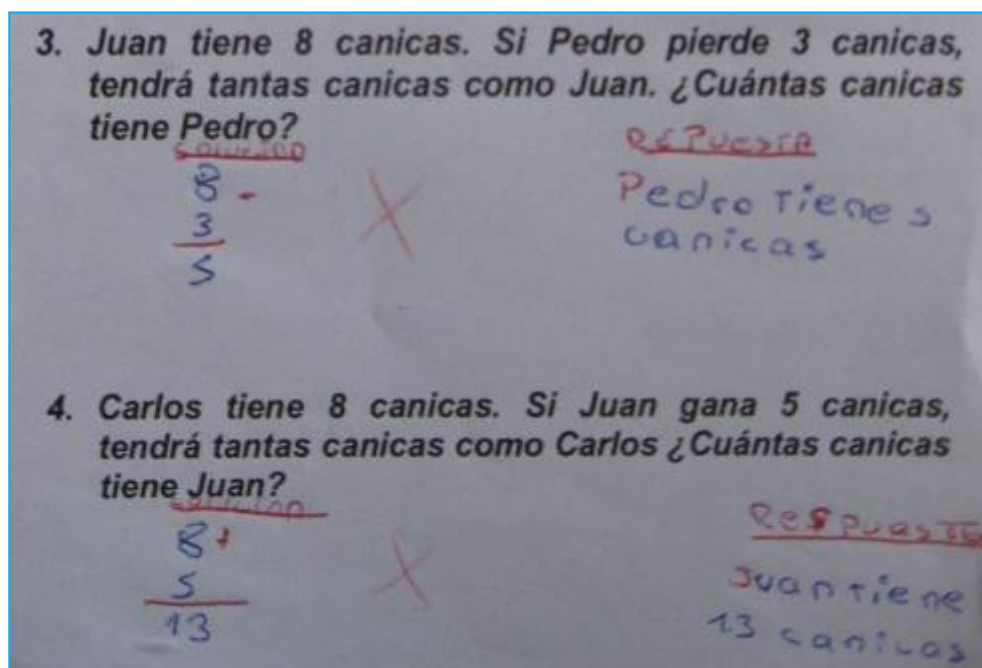 3. Juan tiene 8 canicas. Si Pedro pierde 3 canicas,
tendrá tantas canicas como Juan. ¿Cuántas canicas
tiene Pedro?
solucion
RESPUESTA
8 -
3
5
Pedro Tiene 5
canicas
4. Carlos tiene 8 canicas. Si Juan gana 5 canicas,
tendrá tantas canicas como Carlos ¿Cuántas canicas
tiene Juan?
solucion
Respuesta
8 +
5
13
Juan tiene
13 canicas